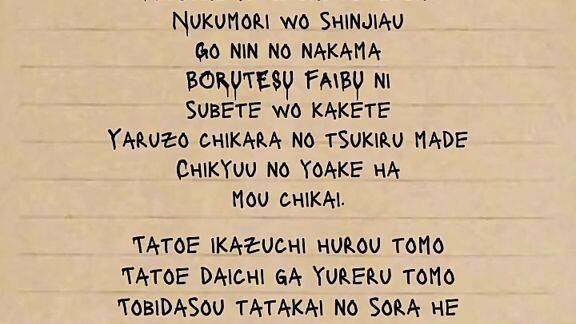 Nukumori wo Shinjiau
Go nin no nakama
BORUTESU FAIBU ni
Subete wo kakete
Yaruzo chikara no tsukiru made
Chikyuu no yoake ha
mou chikai.
Tatoe ikazuchi hurou tomo
Tatoe daichi ga yureru tomo
Tobidasou tatakai no sora he